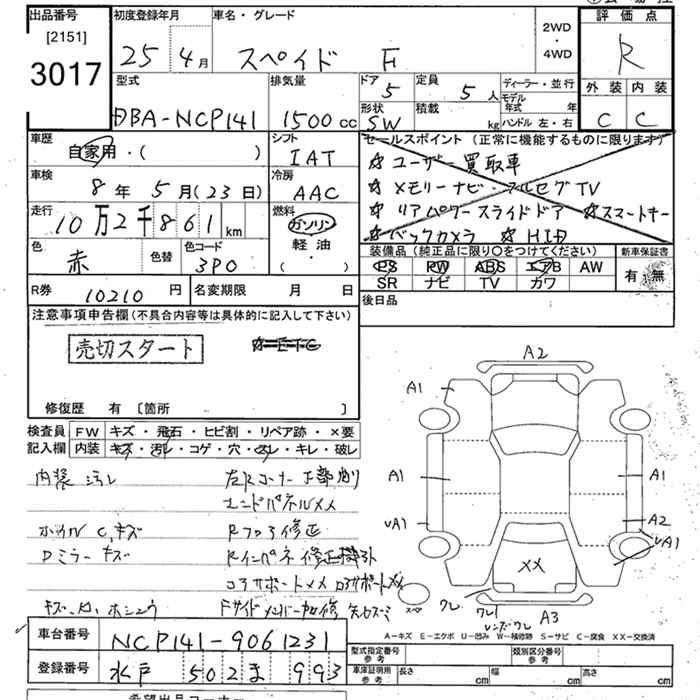 出品番号
[2151]
3017
初度登録年月
25年4月
車名・グレード
スペイド F
2WD
・
4WD
評価点
R
外装 内装
C C
型式
DBA-NCP141
排気量
1500cc
ドア
5
形状
SW
定員
5人
積載
kg
ディーラー・並行
モデル年式 年
ハンドル 左・右
車歴
自家用・( )
シフト
IAT
車検
8年5月(23日)
冷房
AAC
走行
10万2千861km
燃料
ガソリン
軽油
( )
色
赤
色替
色カラーコード
3P0
セールスポイント(正常に機能するものに限ります)
☆ユーザー買取車
☆メモリーナビ・フルセグTV
☆リアパワースライドドア ☆スマートキー
☆バックカメラ ☆HID
装備品(純正品に限り○をつけてください)
PS PW ABS エアB AW
SR ナビ TV カワ
新車保証書
有・無
R券
10210円
名変期限 月 日
後日品
注意事項申告欄(不具合内容等は具体的に記入して下さい)
売切スタート
☆ETC
修復歴 有 [箇所 ]
検査員 FW キズ・飛石・ヒビ割・リペア跡・×要
記入欄 内装 キズ・汚レ・コゲ・穴・スレ・キレ・破レ
内装 汚レ
左Rコーナー下部削り
エンドパネルメメ
ホイルC,キズ
Rフロア修正
Dミラーキズ
Rインパネ修正
コアサポートメメ
Fサイドメンバー
A2
A1
A1
A1
A1
UA1
A2
UA1
XX
スペア
ワレ
ワレ1
レンズワレ
A3
A-キズ E-エクボ U-凹み W-補修跡 S-サビ C-腐食 XX-交換済
車台番号
NCP141-9061231
登録番号
水戸 502 ま 993
型式指定番号
参考
類別区分番号
参考
車庫証明用
参考
長さ cm 幅 cm 高さ cm